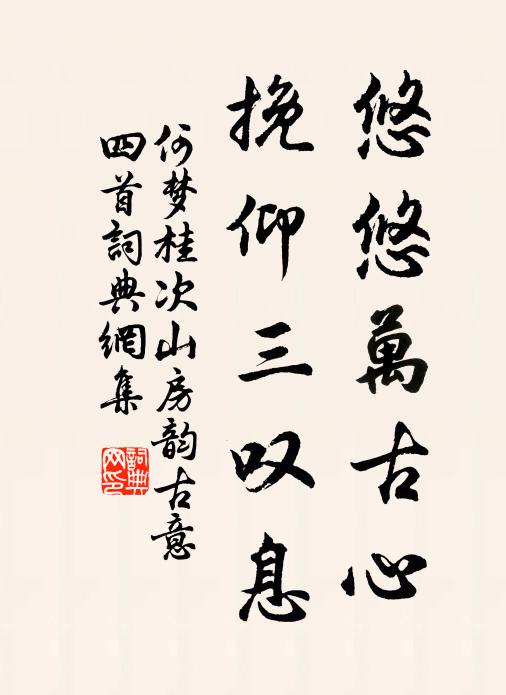 悠悠萬古心
挽仰三叹息
何梦桂次山房韵古意
四首詞典網集
詞典网印